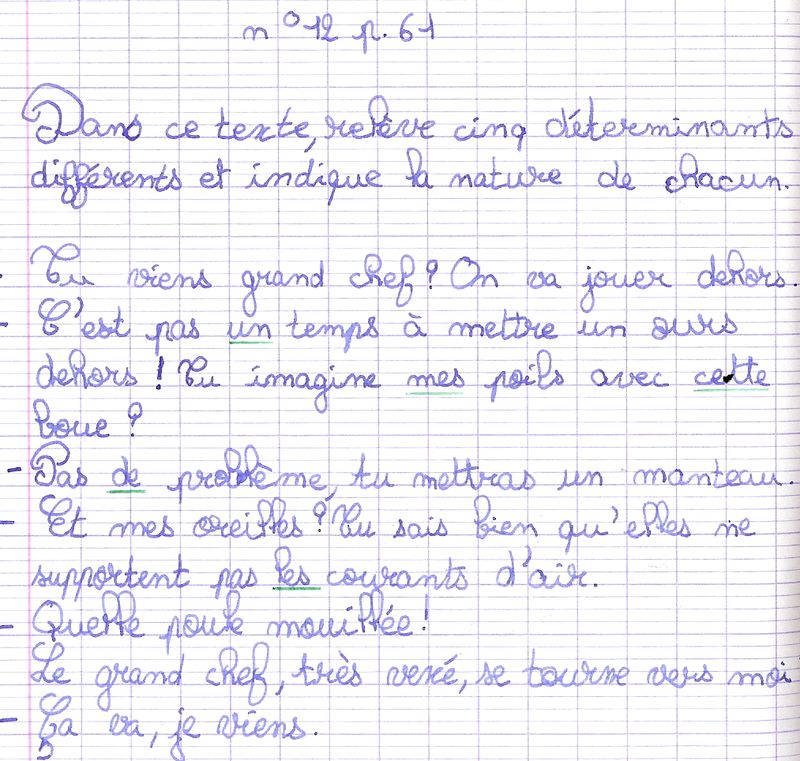 n°12 p. 61
Dans ce texte, relève cinq déterminants
différents et indique la nature de chacun.
- Tu viens grand chef ? On va jouer dehors.
- C'est pas un temps à mettre un ours
dehors ! Tu imagine mes poils avec cette
boue ?
- Pas de problème, tu mettras un manteau.
- Et mes oreilles ? Tu sais bien qu'elles ne
supportent pas les courants d'air.
- Quelle poule mouillée !
Le grand chef, très vexé, se tourne vers moi
- Ça va, je viens.